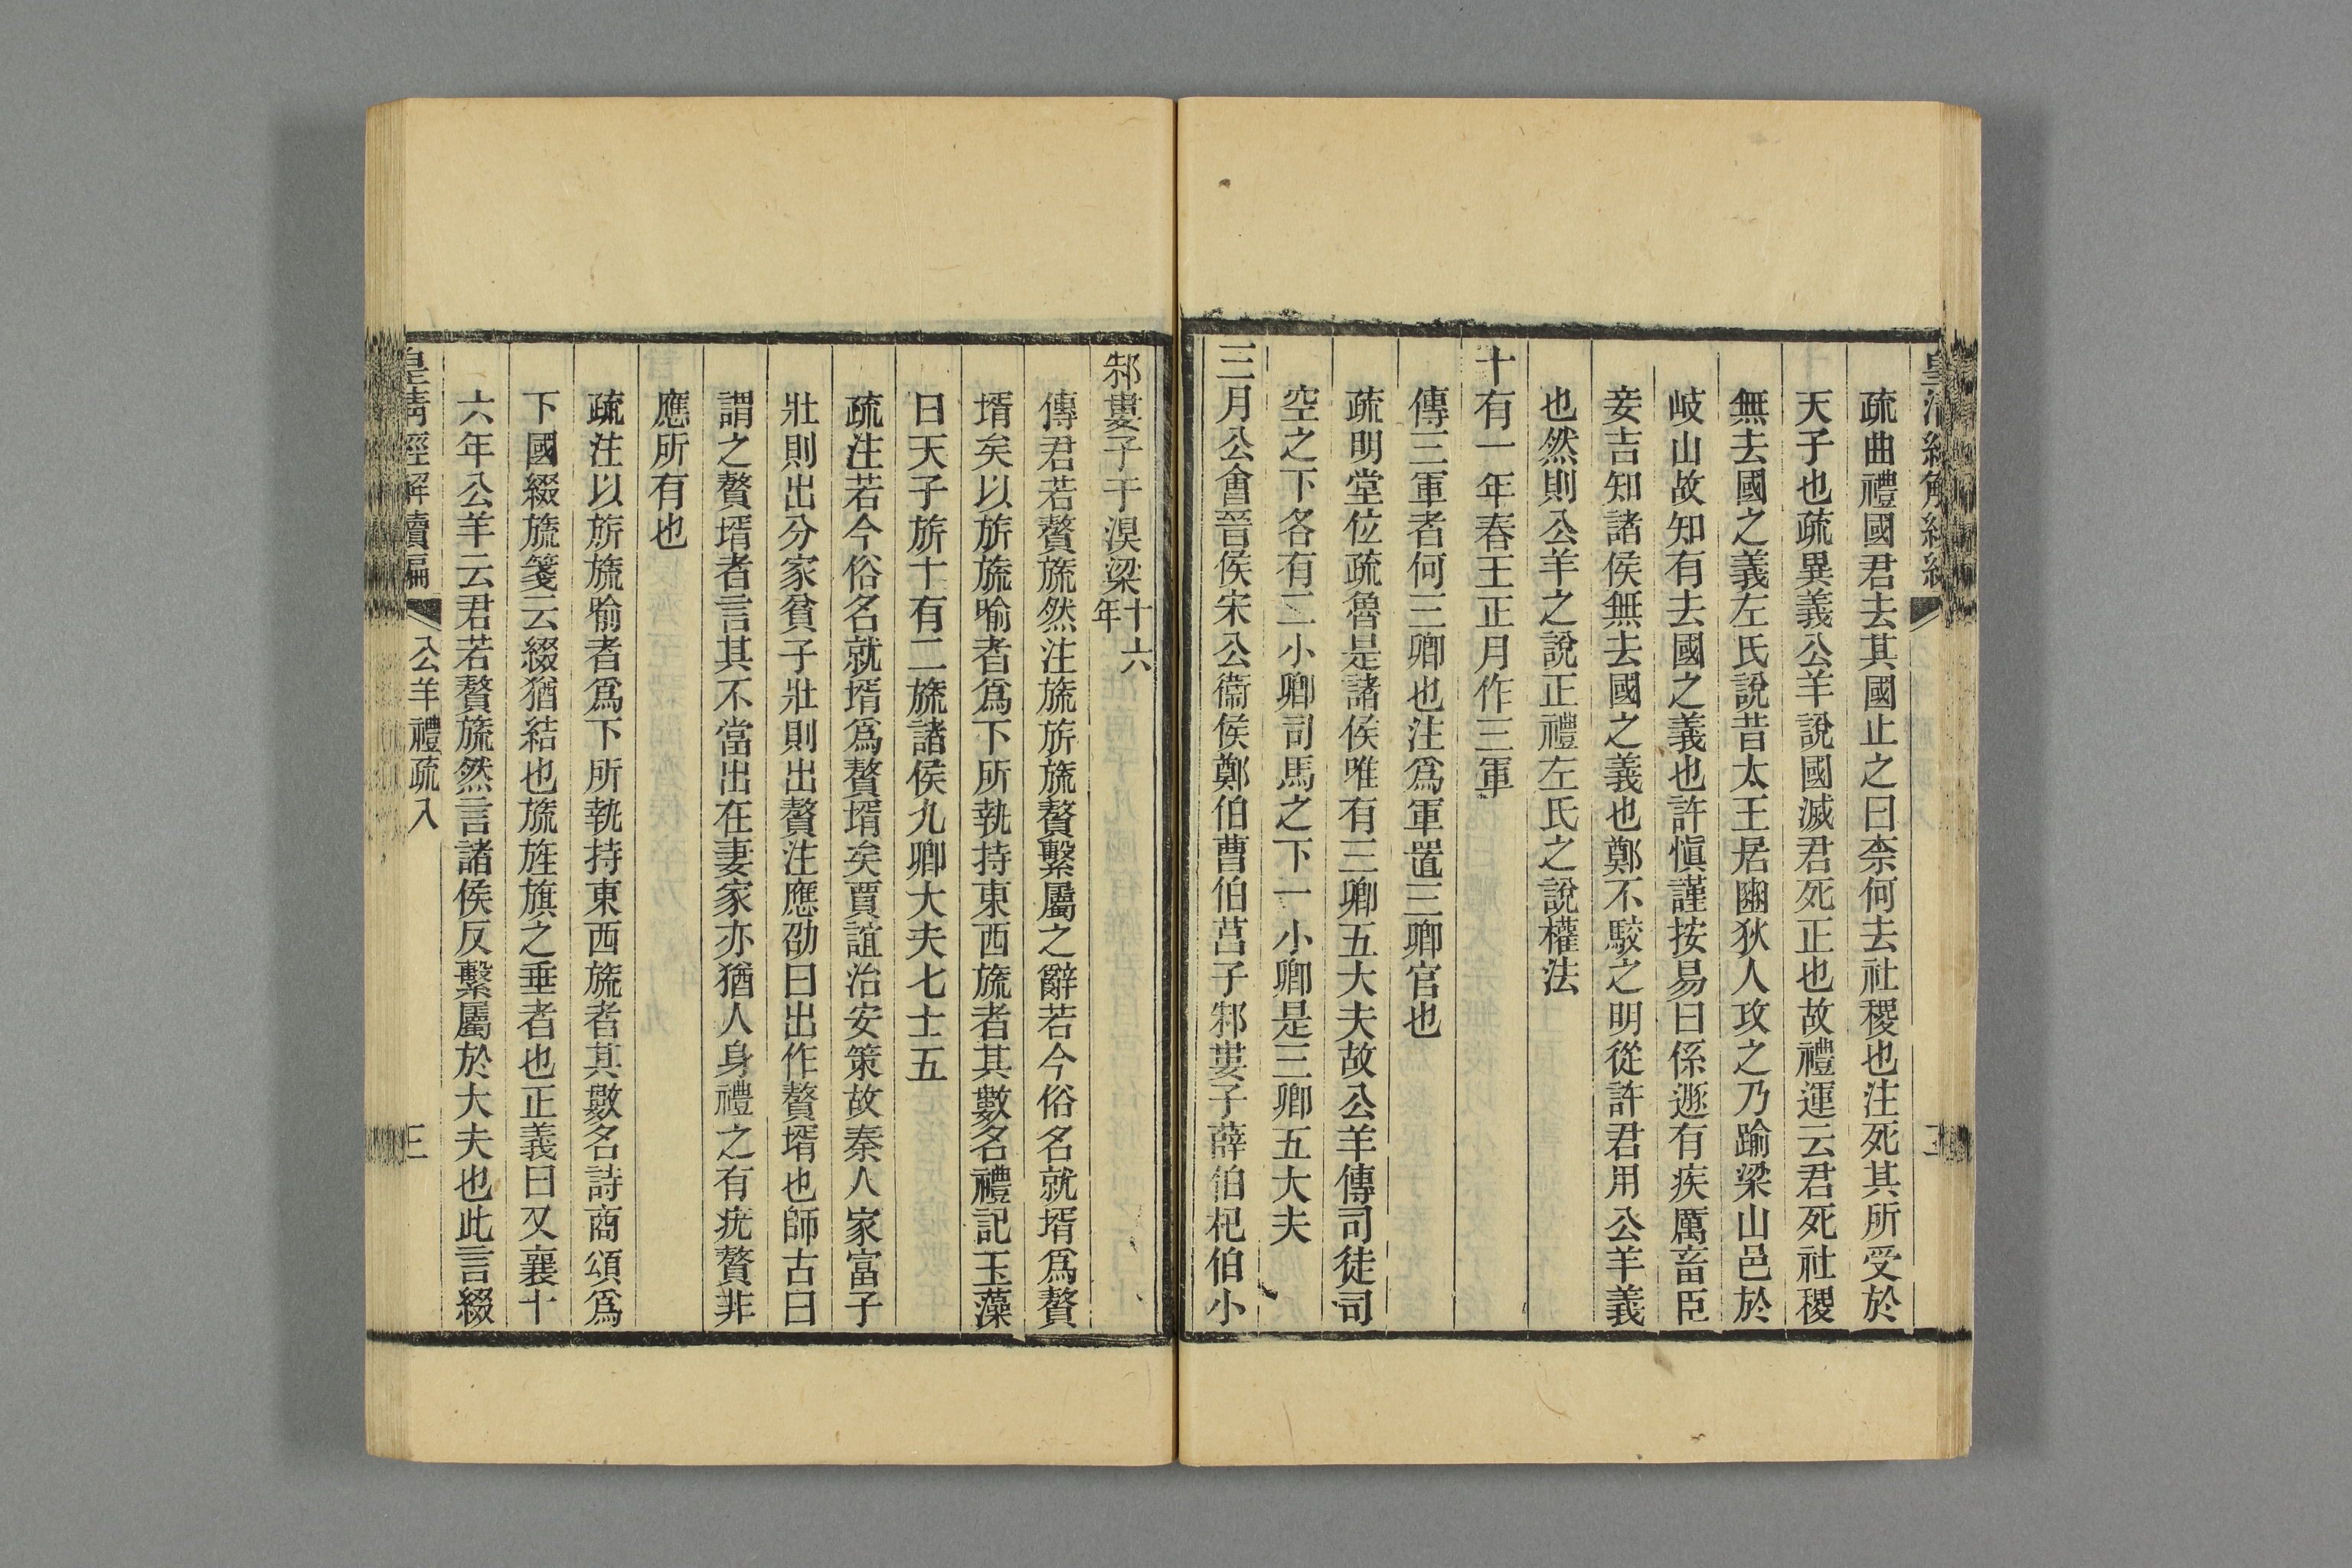 疏曲禮國君去其國止之曰柰何去社稷也注死其所受於
天子也疏異義公羊說國滅君死正也故禮運云君死社稷
無去國之義左氏說昔太王居豳狄人攻之乃踰梁山邑於
岐山故知有去國之義也許愼謹按易曰係遯有疾厲畜臣
妾吉知諸侯無去國之義也鄭不駮之明從許君用公羊義
也然則公羊之說正禮左氏之說權法
十有一年春王正月作三軍
傳三軍者何三卿也注爲軍置三卿官也
疏明堂位疏魯是諸侯唯有三卿五大夫故公羊傳司徒司
空之下各有二小卿司馬之下一小卿是三卿五大夫
三月公會晉侯宋公衞侯鄭伯曹伯莒子邾婁子薛伯杞伯小
邾婁子于湨梁十六年
傳君若贅旒然注旒旂旒贅繫屬之辭若今俗名就壻爲贅
壻矣以旂旒喻者爲下所執持東西旒者其數名禮記玉藻
曰天子旂十有二旒諸侯九卿大夫七士五
疏注若今俗名就壻爲贅壻矣賈誼治安策故秦人家富子
壯則出分家貧子壯則出贅注應劭曰出作贅壻也師古曰
謂之贅壻者言其不當出在妻家亦猶人身禮之有疣贅非
應所有也
疏注以旂旒喻者爲下所執持東西旒者其數名詩商頌爲
下國綴旒箋云綴猶結也旒旌旗之垂者也正義曰又襄十
六年公羊云君若贅旒然言諸侯反繫屬於大夫也此言綴
皇清經解續編 公羊禮疏八 三